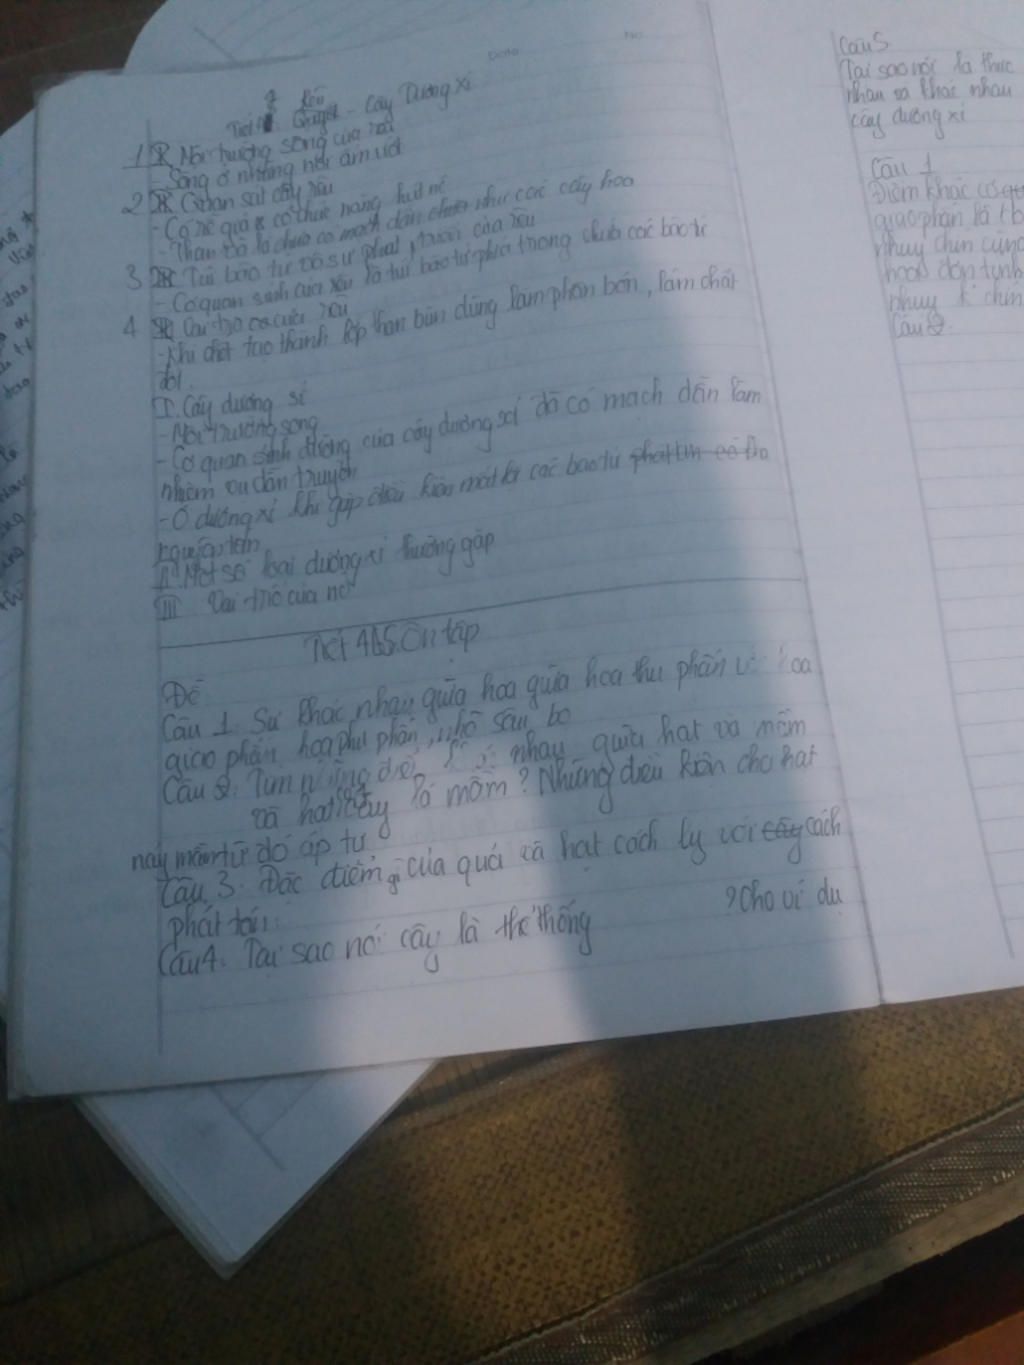 Rêu
Quyết - Cây Dương xỉ
1 Môi trường sống của rêu
Sống ở những nơi ẩm ướt
2 Quan sát cây rêu
- Có rễ giả có chức năng hút nc
- Thân và lá chưa có mạch dẫn như các cây hoa
3 Túi bào tử và sự phát triển của rêu
- Cơ quan sinh của rêu là túi bào tử phía trong chứa các bào tử
4 Vai trò của rêu
- Khi chết tạo thành lớp than bùn dùng làm phân bón, làm chất
đốt.
I. Cây dương sỉ
- Môi trường sống
- Cơ quan sinh dưỡng của cây dương xỉ đã có mạch dẫn làm
nhiệm vụ dẫn truyền
- Ở dương xỉ khi gặp điều kiện các bào tử
nguyên tản
II. Một số loại dương xỉ thường gặp
III Vai trò của nó
Tiết 45. Ôn tập
Đề
Câu 1. Sự khác nhau giữa hoa giữa hoa thụ phấn với hoa
giao phấn, hoa thụ phấn nhờ sâu bọ
Câu 2: Tìm những nhau giữa hạt và mầm
và hạt lá mầm? Những điều kiện cho hạt
nảy mầm từ đó áp tự
Câu 3. Đặc điểm gì của quả và hạt cách ly với cây cách
phát tán:
Câu 4. Tại sao nói cây là thể thống ? Cho ví dụ
Câu 5
Tại sao nói là thực
nhau và khác nhau
cây dương xỉ
Câu 1
Điểm khác
giao phấn là
nhụy chín cùng
hoa đơn tính
nhụy k chín
Câu 2.